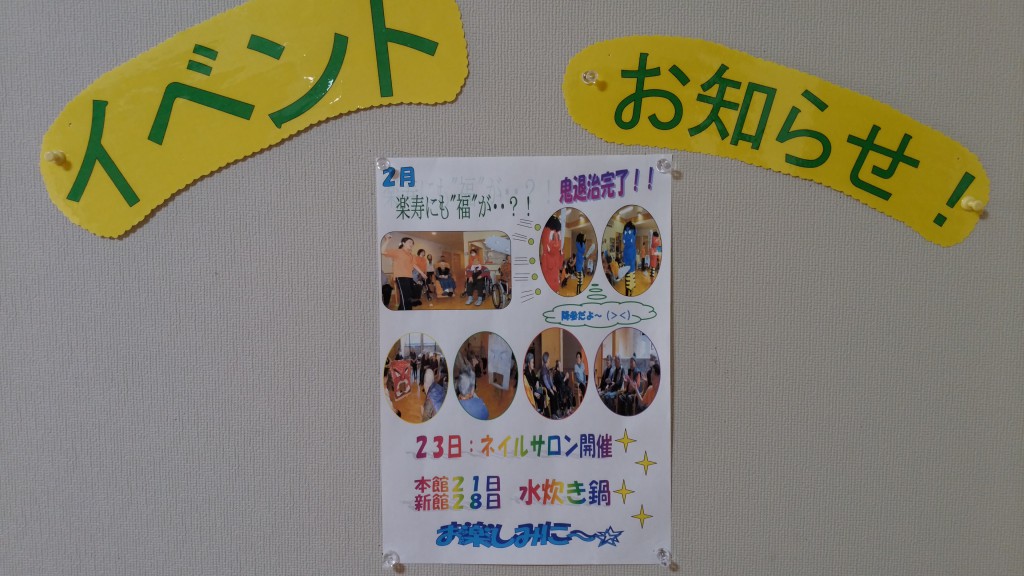 イベント
お知らせ！
2月
楽寿にも"福"が・・？！
鬼退治完了！！
降参だよ～（＞＜）
２３日：ネイルサロン開催
本館２１日
新館２８日
水炊き鍋
お楽しみに～☆